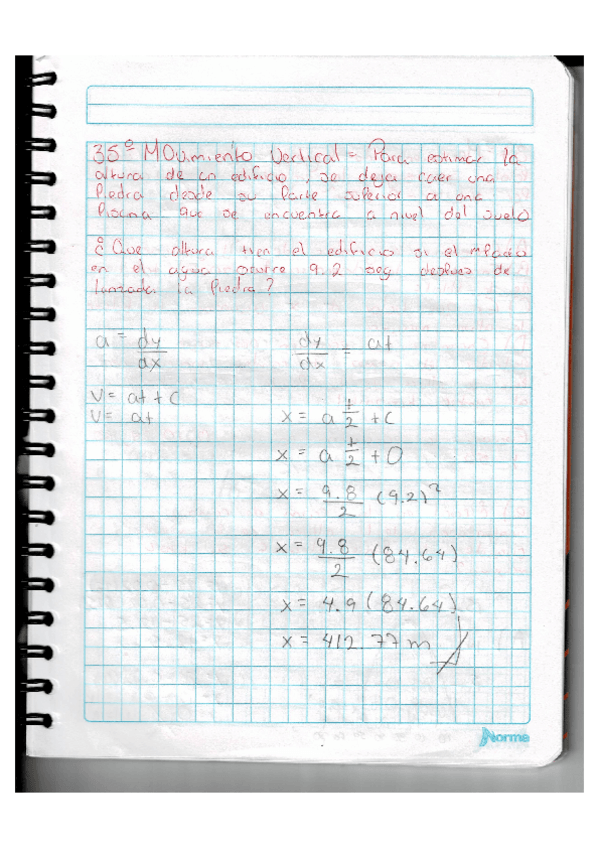 35º MOvimiento Vertical = Para estimar la
altura de un edificio, se deja caer una
Piedra desde su Parte superior a una
Piscina que se encuentra a nivel del suelo
¿ Que altura tien el edificio si el impacto
en el agua ocurre 9.2 seg despues de
lanzada la Piedra?
a = dy/dx
dy/dx = at
V = at + C
V = at
x = a t/2 + C
x = a t/2 + 0
x = 9.8/2 (9.2)²
x = 9.8/2 (84.64)
x = 4.9 (84.64)
x = 412.77 m
Norma